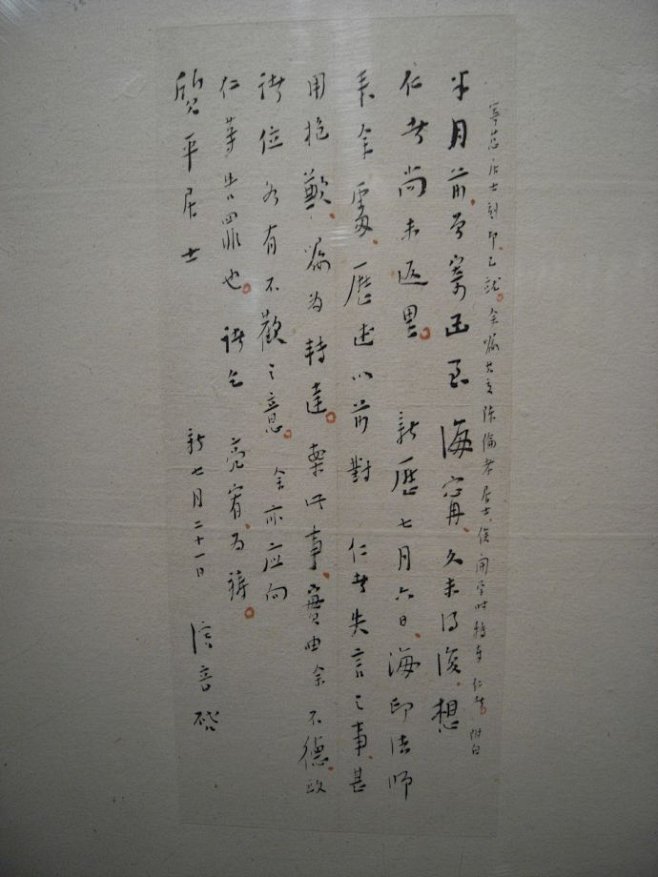 居士刻印已就。余囑 陳倫孝居士,俟開學時轉奉 仁者。附白
半月前,曾寄函至 海甯,久未得復,想
仁者尚未返里。 新歷七月六日,海印法師
來余處,歷述以前對 仁者失言之事,甚
用抱歉,囑為轉達。案此事,實由余不德,致
諸位各有不歡之意。余亦应向
仁等告罪也。諸乞 亮宥,為禱。
質平居士 新七月二十一日 演音啓